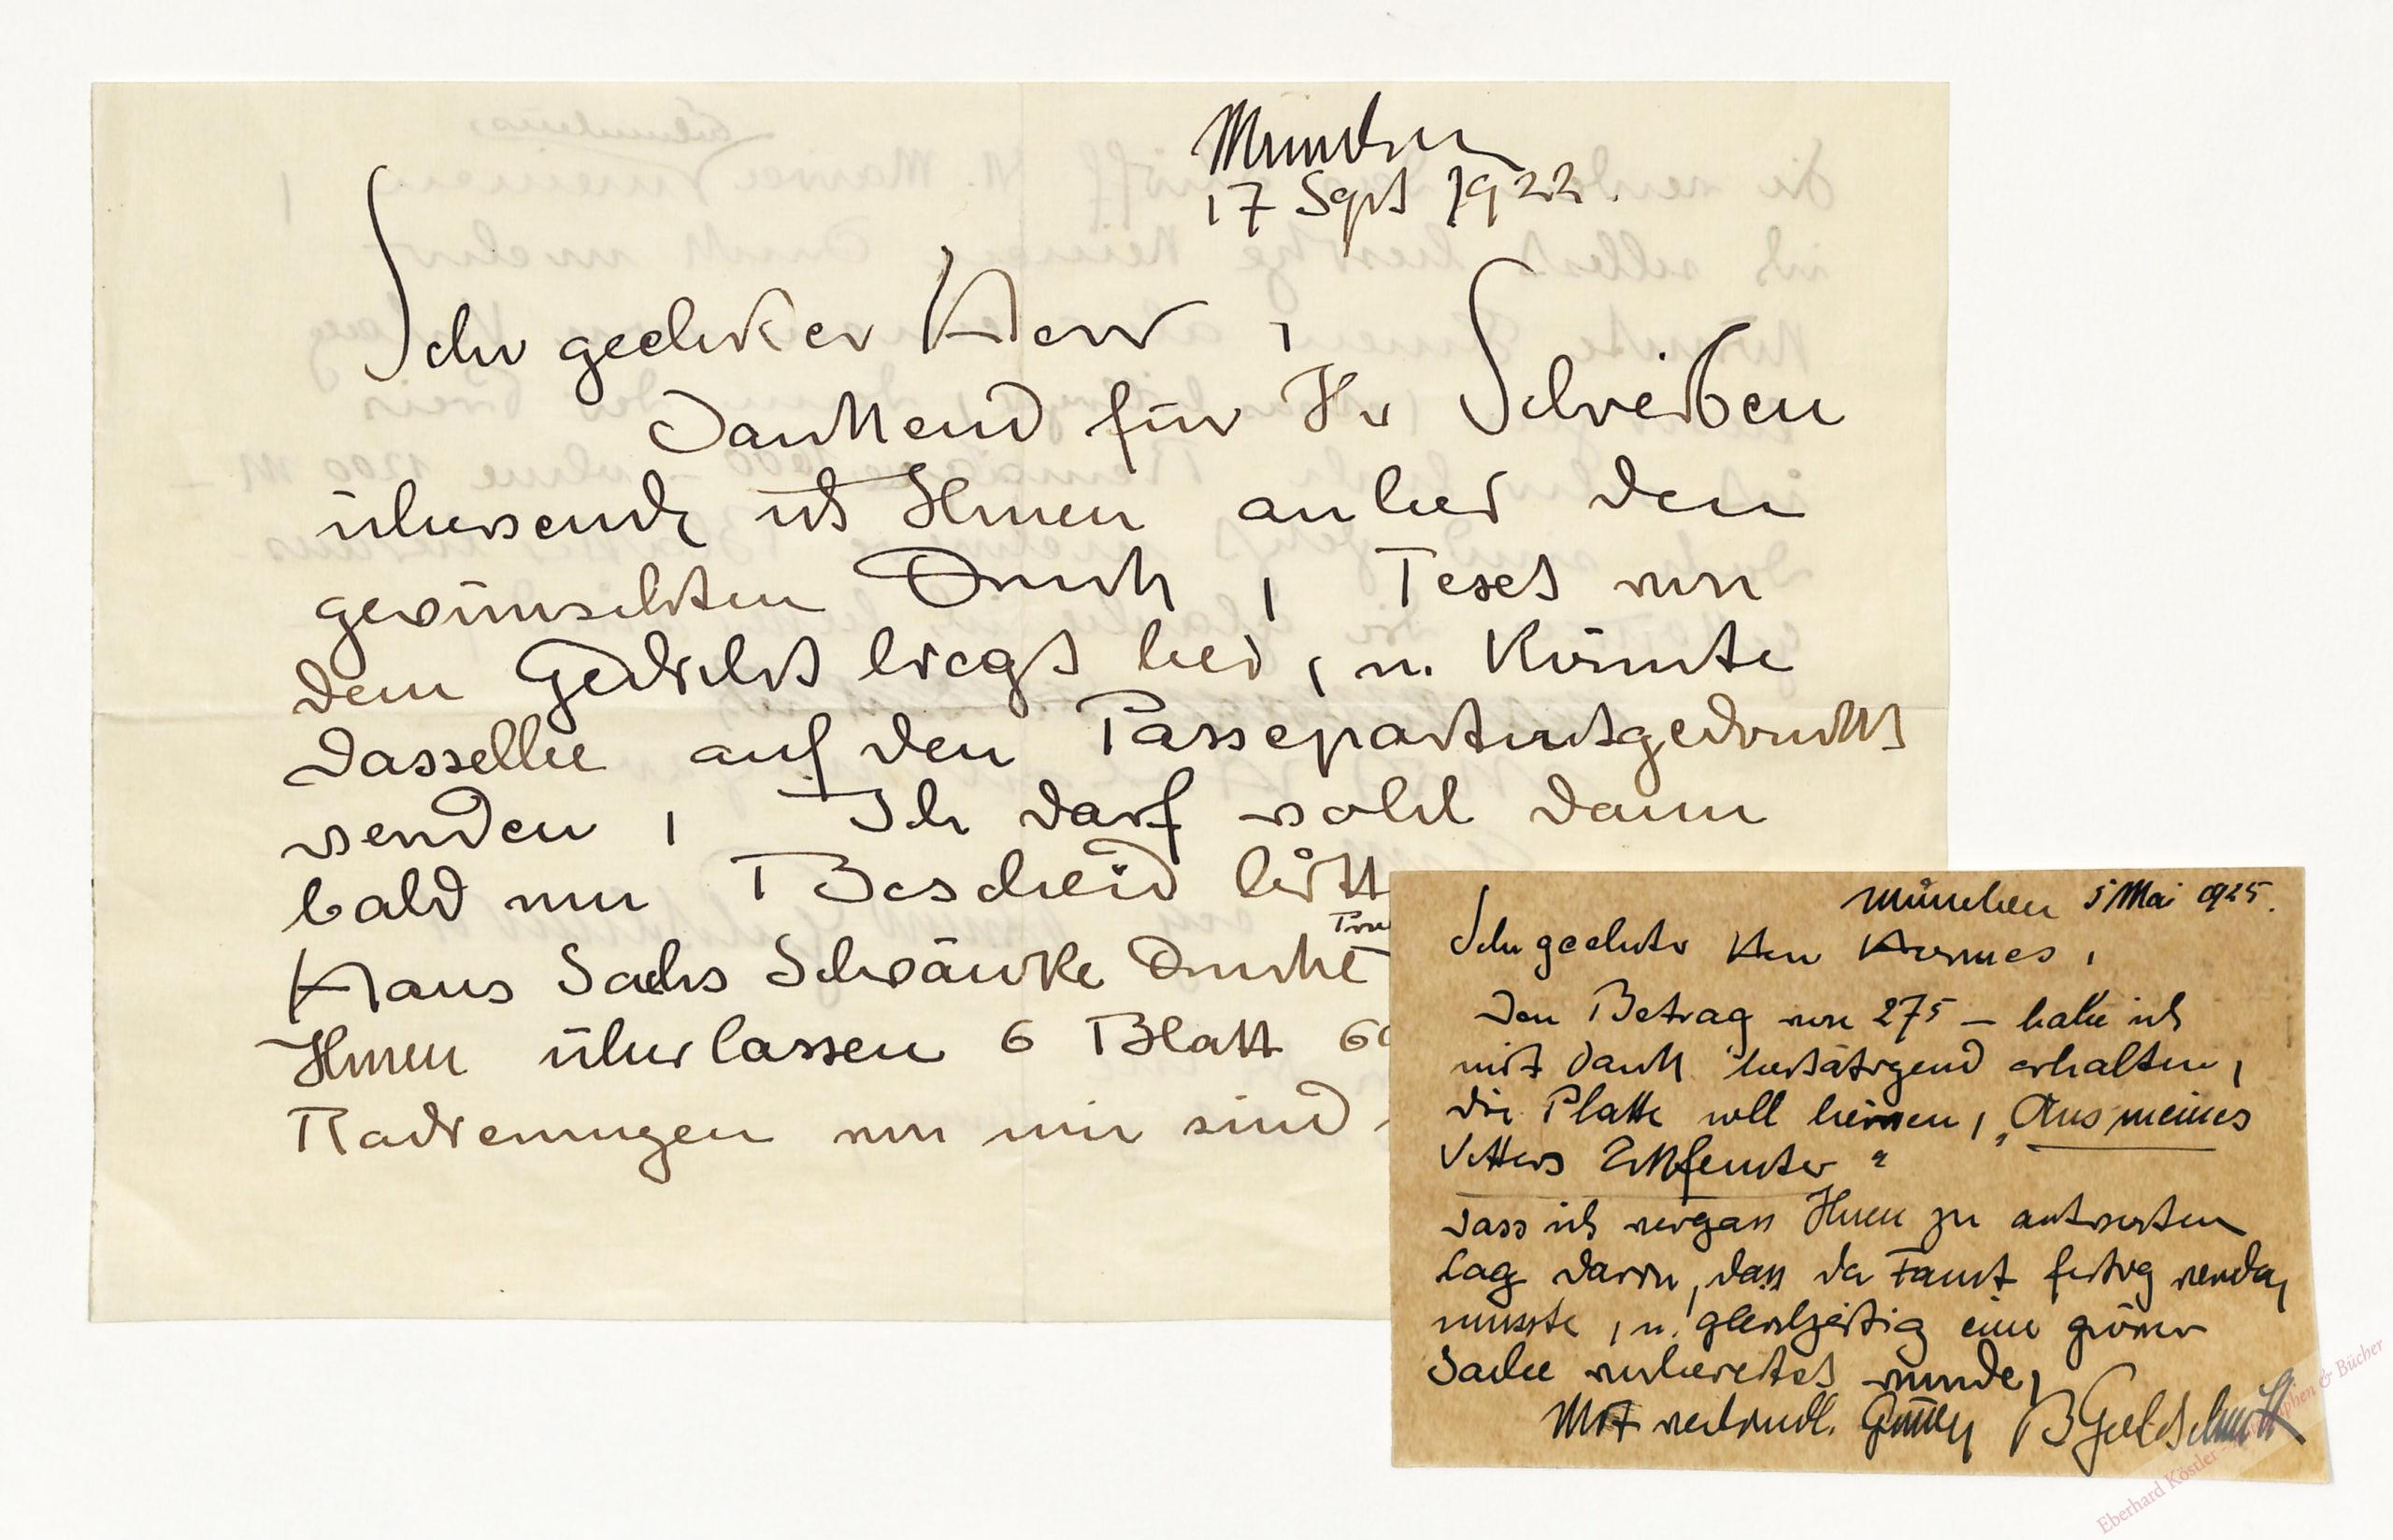 München
17 Sept 1922.
Sehr geehrter Herr,
Dankend für Ihr Schreiben
übersende ich Ihnen anbei den
gewünschten Druck, Text von
dem Gedicht liegt bei, u. könnte
dasselbe auf den Passepartoutgedruckt
werden, Ich darf wohl dann
bald um Bescheid bitt
Hans Sachs Schwänke Drucke
Ihnen überlassen 6 Blatt 60
Radierungen von mir sind
München 5 Mai 1925.
Sehr geehrter Herr Hermes,
Den Betrag von 275 – habe ich
mit Dank bestätigend erhalten,
die Platte soll heissen, „Aus meines
Vetters Eckfenster"
Dass ich vergass Ihnen zu antworten
lag darin, dass der Faust fertig werden
musste, u. gleichzeitig eine grösser
Sache vorbereitet wurde,
Mit verbindl. Grüssen BGoldschmitt
Eberhard Köstler Autographen & Bücher